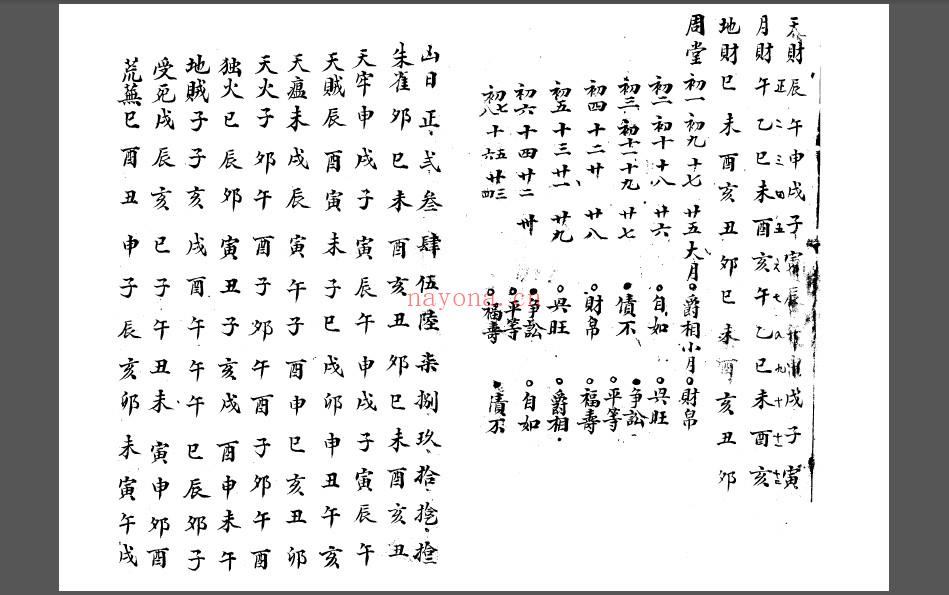 天財辰午申戌子寅辰午申戌子寅
正二三四五六七八九十十一十二
月財午乙巳未酉亥午乙巳未酉亥
地財巳未酉亥丑卯巳未酉亥丑卯
周堂 初一 初九 十七 廿五 大月 爵相 小月 財帛
初二 初十 十八 廿六 自如 兴旺
初三 初十一 十九 廿七 債不 争訟
初四 十二 廿 廿八 財帛 平等
初五 十三 廿一 廿九 兴旺 福壽
初六 十四 廿二 卅 争訟 爵相
初七 十五 廿三 平等 自如
八 十六 廿四 福壽 債不
山日 正 弍 叁 肆 伍 陸 柒 捌 玖 拾
朱雀 卯巳未酉亥丑卯巳未酉亥丑
天牢 申戌子寅辰午申戌子寅辰午
天賊 辰酉寅未子巳戌卯申丑午亥
天瘟 未戌辰寅午子酉申巳亥丑卯
天火 子卯午酉子卯午酉子卯午酉
独火 巳辰卯寅丑子亥戌酉申未午
地賊 子子亥戌酉午午午巳辰卯子
受死 戌辰亥巳子午丑未寅申卯酉
荒蕪 巳酉丑申子辰亥卯未寅午戌
nayona.cn